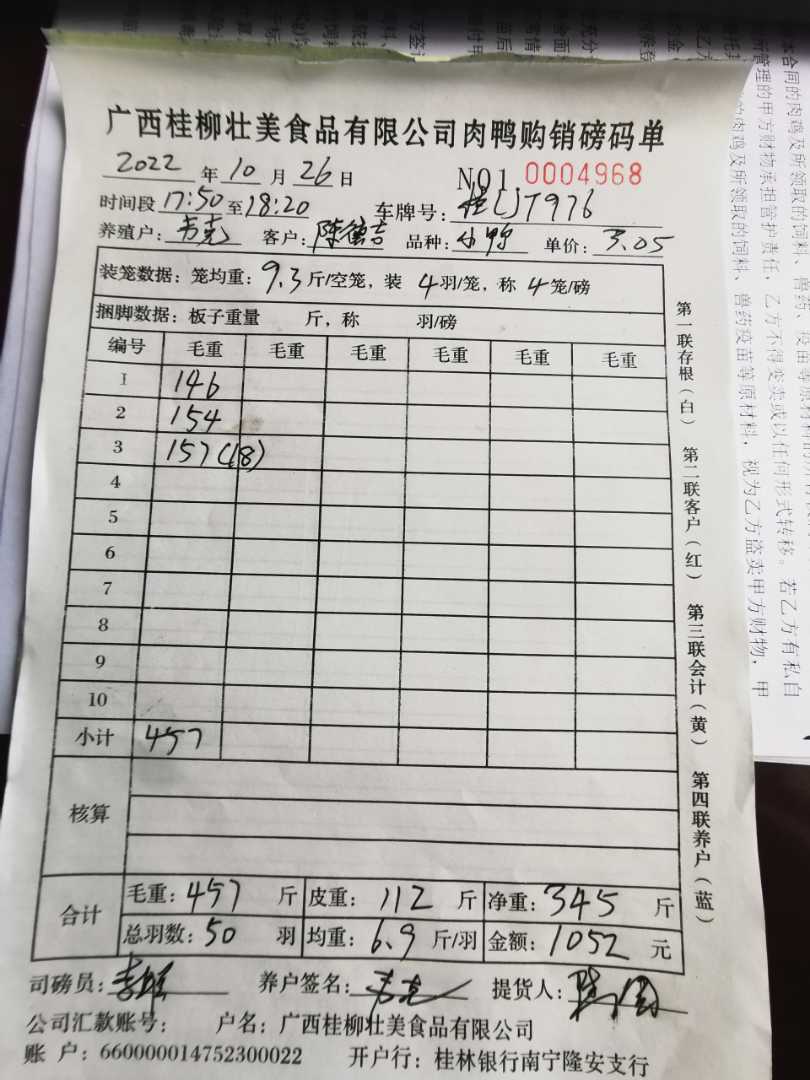 广西桂柳壮美食品有限公司肉鸭购销磅码单
2022 年 10 月 26 日 NO1. 0004968
时间段 17:50 至 18:20 车牌号: 桂CJT976
养殖户: 韦克 客户: 陈德吉 品种: 单价: 3.05
装笼数据: 笼均重: 9.3 斤/空笼, 装 4 羽/笼, 称 4 笼/磅
捆脚数据: 板子重量 斤, 称 羽/磅
编号 毛重 毛重 毛重 毛重 毛重 毛重
1 146
2 154
3 157 (18)
4
5
6
7
8
9
10
小计 457
核算
合计 毛重: 457 斤 皮重: 112 斤 净重: 345 斤
总羽数: 50 羽 均重: 6.9 斤/羽 金额: 1052 元
司磅员: 养户签名: 韦克 提货人:
公司汇款账号: 户名: 广西桂柳壮美食品有限公司
账 户: 660000014752300022 开户行: 桂林银行南宁隆安支行
第一联存根(白) 第二联客户(红) 第三联会计(黄) 第四联养户(蓝)
本合同的肉鸡及所领取的饲料、兽药、疫苗等原材料的
所管理的甲方财物承担管护责任,乙方不得变卖或以任何形式转移。若乙方有私自
的肉鸡及所领取的饲料、兽药疫苗等原材料,视为乙方盗卖甲方财物,甲